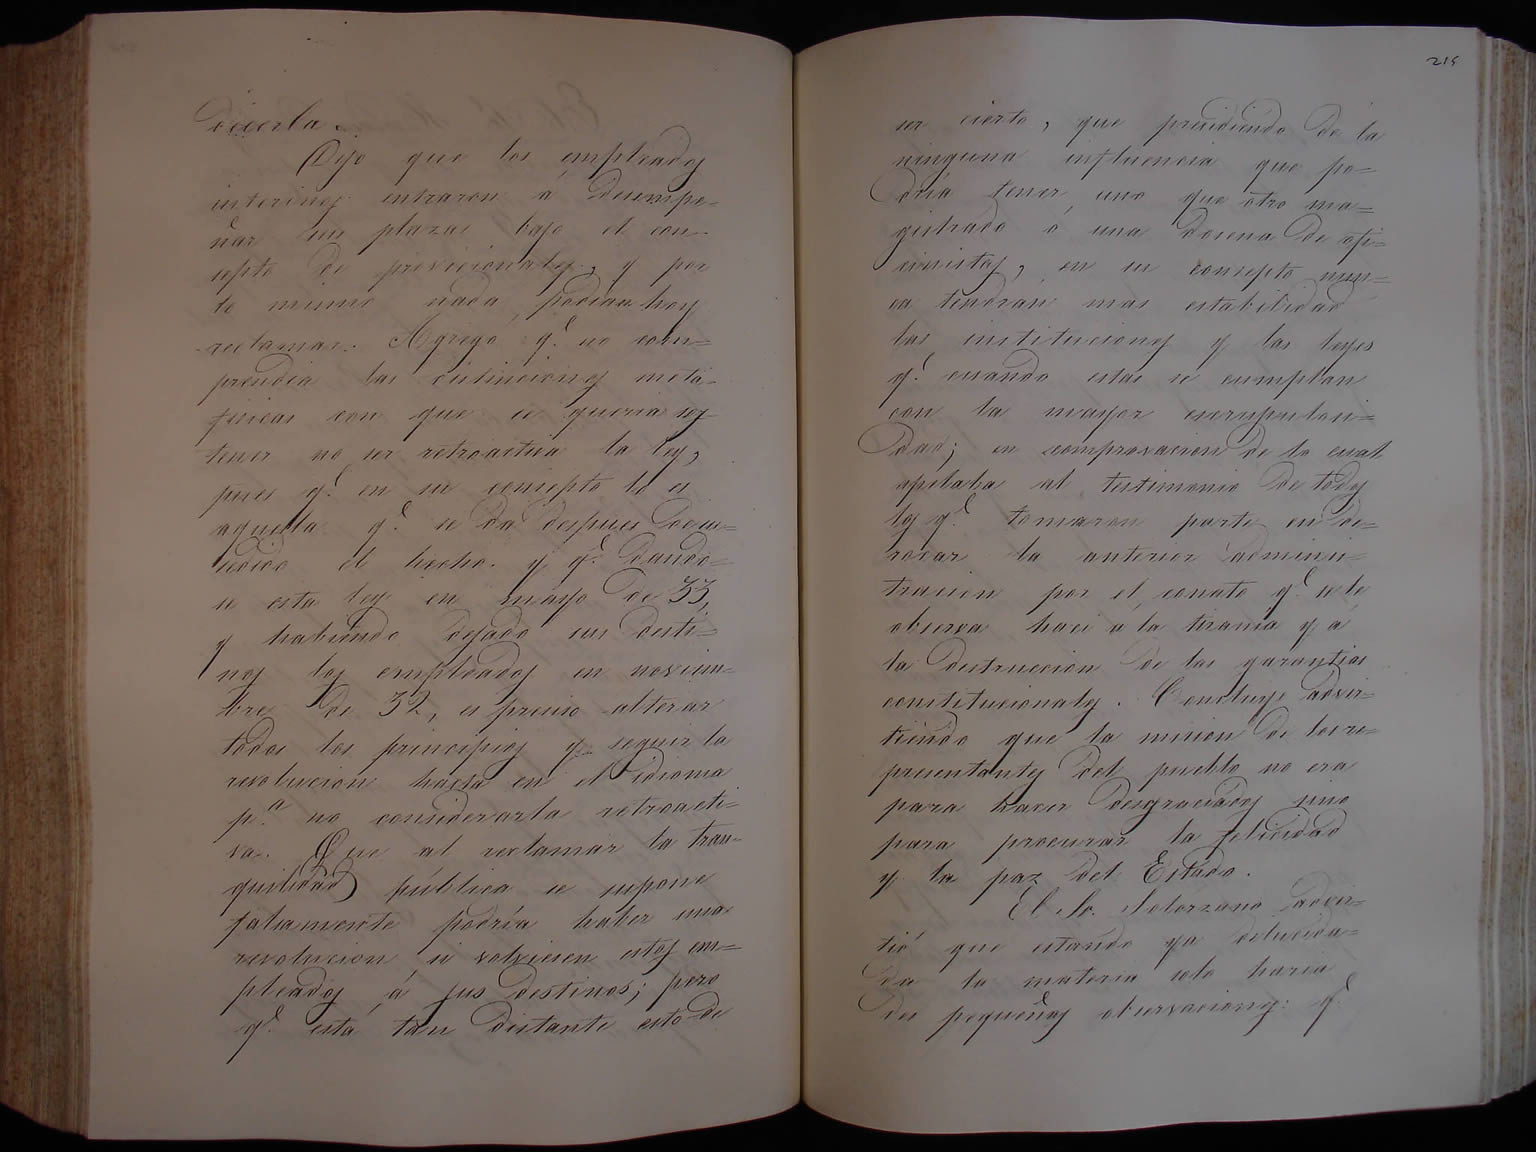 decirla.
Dijo que los empleados
interinos entraron á desempe=
ñar sus plazas bajo el con-
cepto de provicionales, y por
lo mismo nada podian hoy
reclamar. Agregó q.e no com=
prendia las distinciones metá-
fisicas con que se queria sos
tener no ser retroactiva la ley,
pues q.e en su concepto lo es
aquella q.e se da despues de su=
cedido el hecho. y q.e dando-
se esta ley en mayo de 33,
y habiendo dejado sus desti=
nos los empleados en noviem-
bre de 32, es preciso alterar
todos los principios y seguir la
revolucion hasta en el idioma
p.a no considerarla retroacti-
va. Que al reclamar la tran-
quilidad pública se supone
falsamente podría haber una
revolucion si volviesen estos em=
pleados á sus destinos; pero
q.e está tan distante esto de
215
ser cierto, que presidiendo de la
ninguna influencia que po-
dria tener uno que otro ma=
gistrado ó una docena de ofi=
cinistas, en su concepto nun=
ca tendrán mas estabilidad
las instituciones y las leyes
q.e cuando estas se cumplan
con la mayor escrupulosi=
dad; en comprovacion de lo cual
apelaba al testimonio de todos
los q.e tomaron parte en de-
rrocar la anterior adminis-
tracion por el conato q.e se le
observa haci a la tirania y á
la destruccion de las garantias
constitucionales. Concluye advir-
tiendo que la mision de los re-
presentantes del pueblo no era
para hacer desgraciados sino
para procurar la felicidad
y la paz del Estado.
El Sr. Solorzano advir-
tió que estando ya dilucida-
da la materia solo haria
dos pequeñas observaciones: q.e